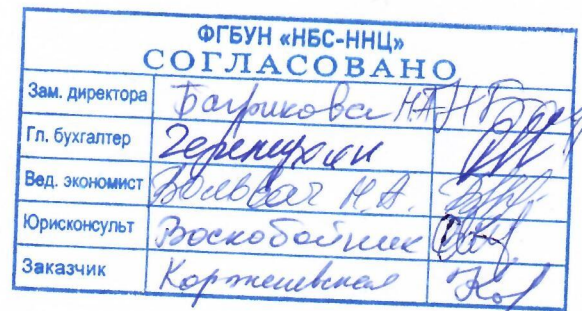 ФГБУН «НБС-ННЦ»
СОГЛАСОВАНО
Зам. директора Багрикова Н.А.
Гл. бухгалтер
Вед. экономист Н.А.
Юрисконсульт Воскобойник
Заказчик Коржиневская